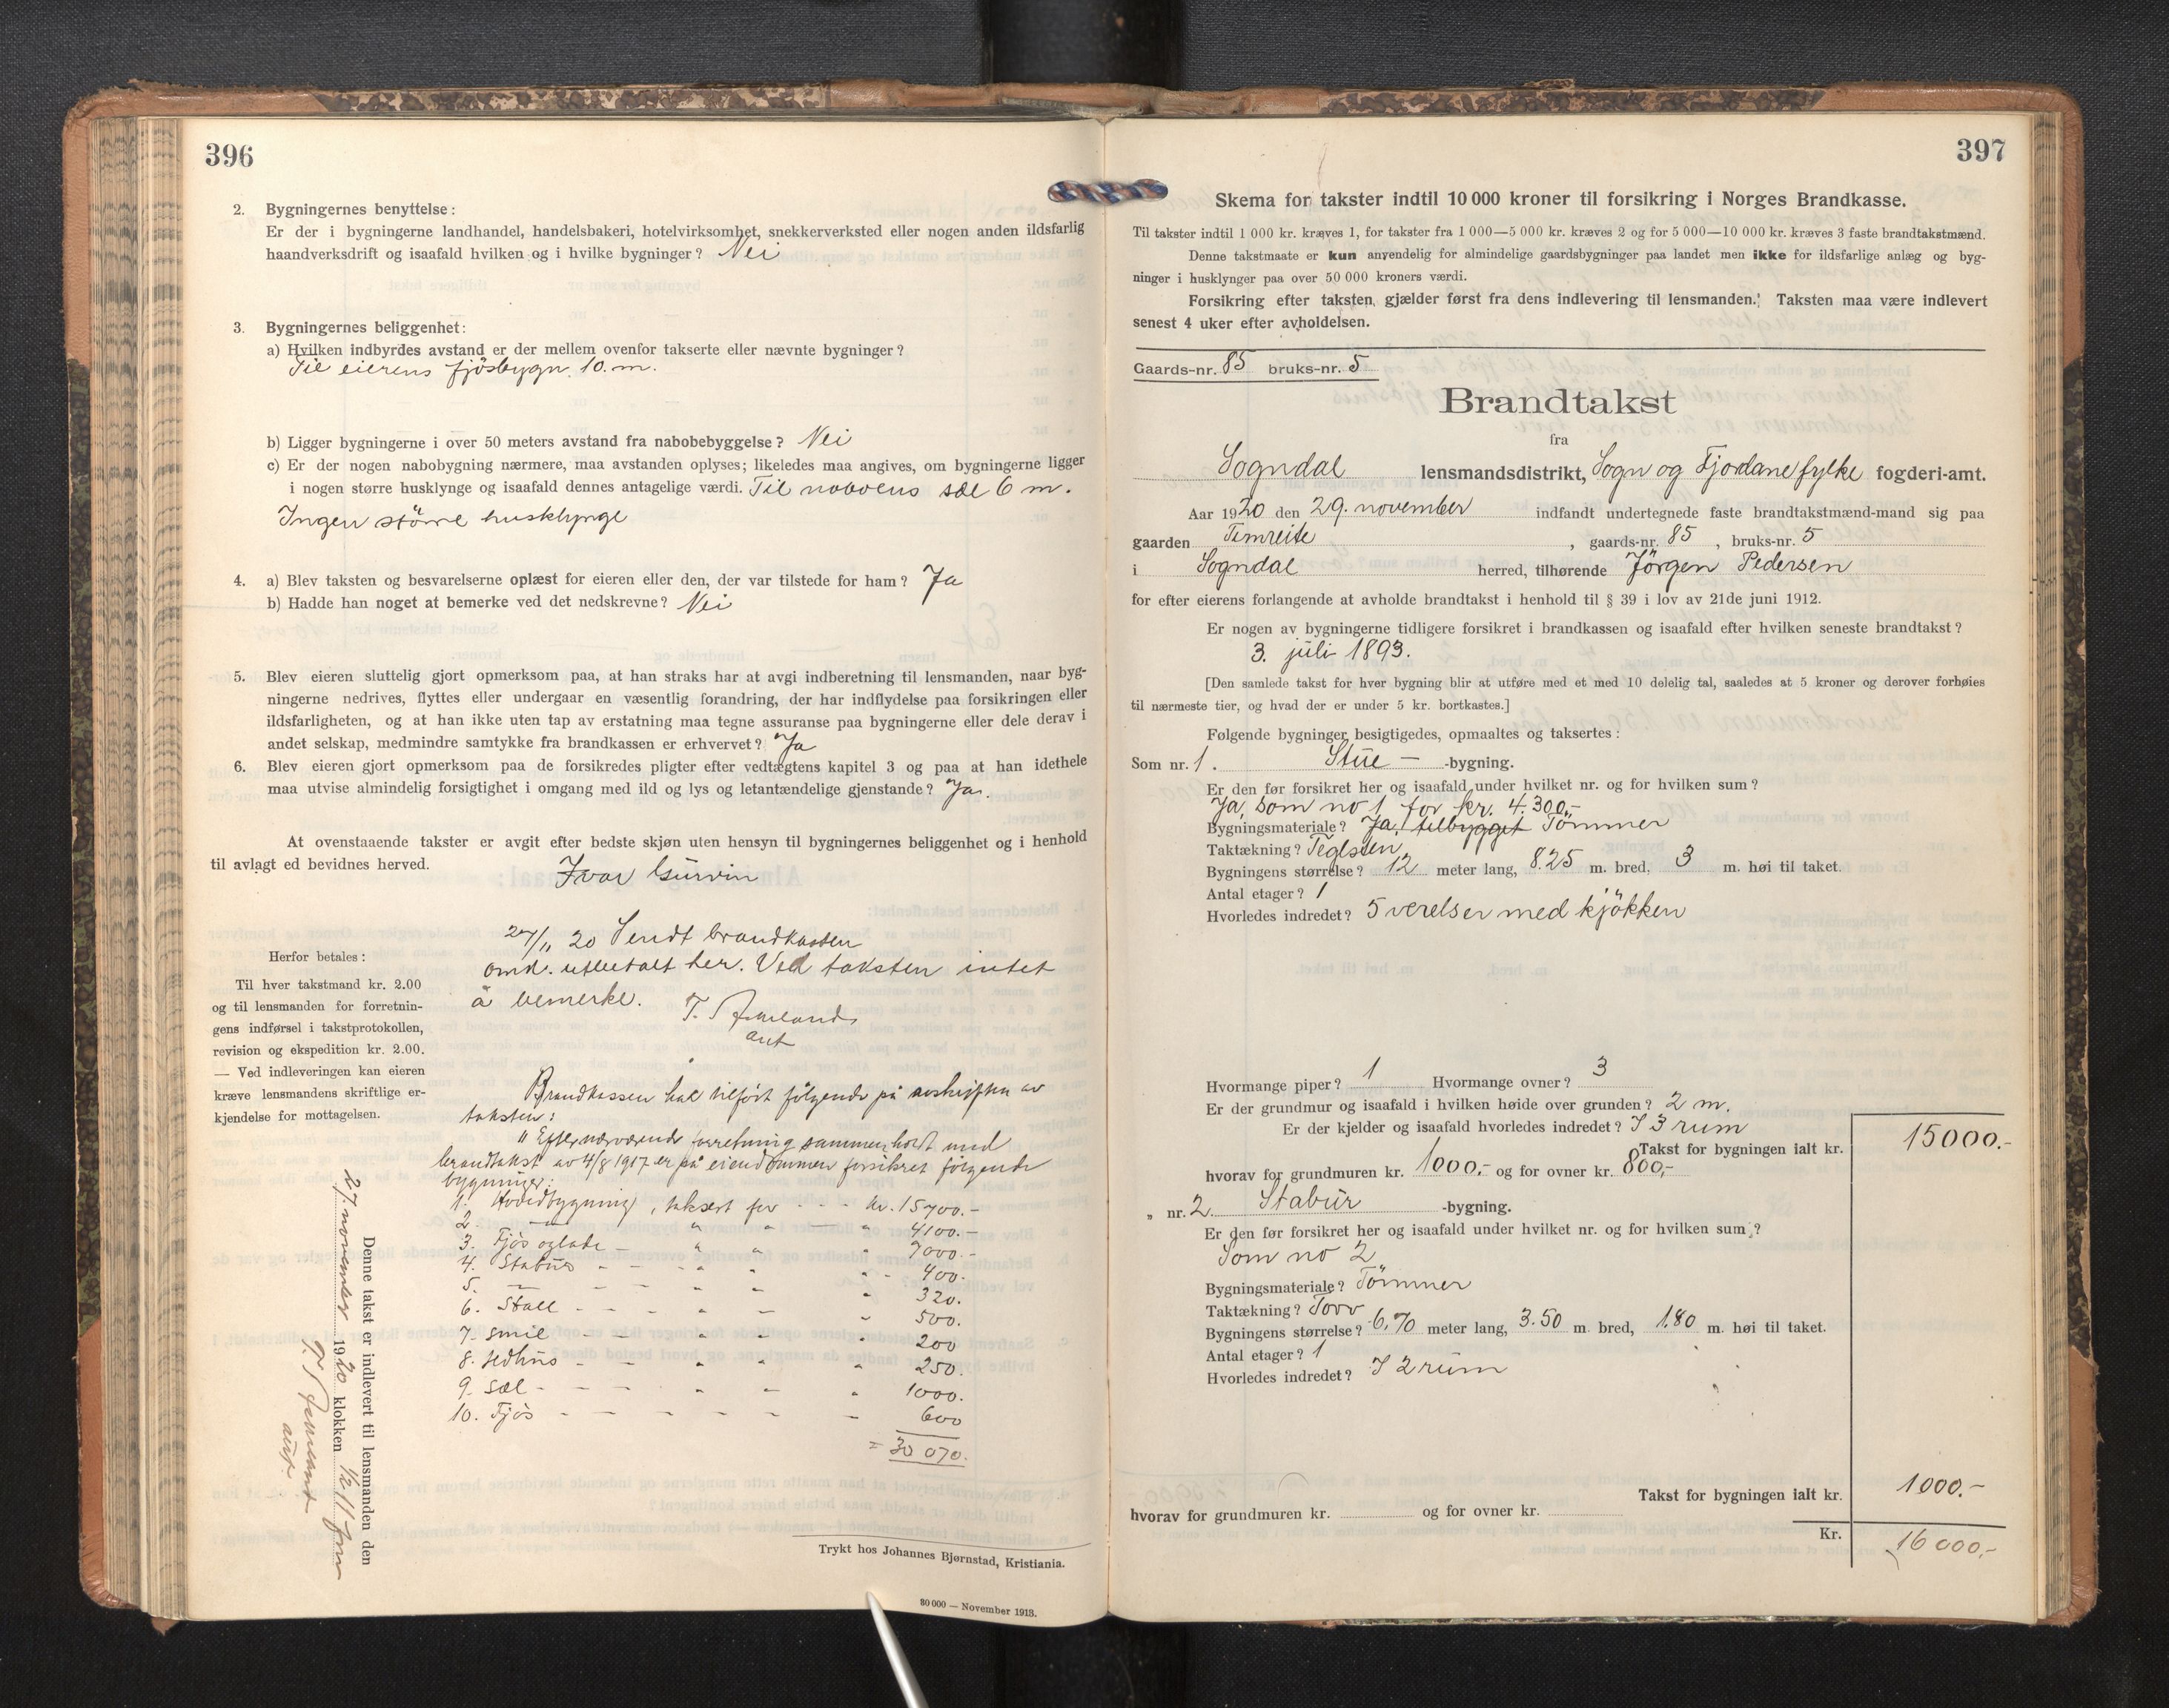 396
2. Bygningernes benyttelse:
Er der i bygningerne landhandel, handelsbakeri, hotelvirksomhet, snekkerverksted eller nogen anden ildsfarlig
haandverksdrift og isaafald hvilken og i hvilke bygninger? Nei
3. Bygningernes beliggenhet:
a) Hvilken indbyrdes avstand er der mellem ovenfor takserte eller nævnte bygninger?
Til eierens fjösbygn. 10. m.
b) Ligger bygningerne i over 50 meters avstand fra nabobebyggelse? Nei
c) Er der nogen nabobygning nærmere, maa avstanden oplyses; likeledes maa angives, om bygningerne ligger
i nogen større husklynge og isaafald dennes antagelige værdi. Til naboens sæl 6 m.
Ingen större husklynge
4. a) Blev taksten og besvarelserne oplæst for eieren eller den, der var tilstede for ham? Ja
b) Hadde han noget at bemerke ved det nedskrevne? Nei
5. Blev eieren sluttelig gjort opmerksom paa, at han straks har at avgi indberetning til lensmanden, naar byg-
ningerne nedrives, flyttes eller undergaar en væsentlig forandring, der har indflydelse paa forsikringen eller
ildsfarligheten, og at han ikke uten tap av erstatning maa tegne assuranse paa bygningerne eller dele derav i
andet selskap, medmindre samtykke fra brandkassen er erhvervet? Ja
6. Blev eieren gjort opmerksom paa de forsikredes pligter efter vedtægtens kapitel 3 og paa at han idethele
maa utvise almindelig forsigtighet i omgang med ild og lys og letantændelige gjenstande? Ja.
At ovenstaaende takster er avgit efter bedste skjøn uten hensyn til bygningernes beliggenhet og i henhold
til avlagt ed bevidnes herved.
Ivar Gurvin
27/11 20 Sendt brandkassen
omk. utbetalt her. Ved taksten intet
å bemerke.
Herfor betales:
Til hver takstmand kr. 2.00
og til lensmanden for forretnin-
gens indførsel i takstprotokollen,
revision og ekspedition kr. 2.00.
— Ved indleveringen kan eieren
kræve lensmandens skriftlige er-
kjendelse for mottagelsen.
Brandkassen har tilfört fölgende på avskriften av
taksten:
" Efter nærværende forretning sammenholdt med
brandtakst av 4/8 1917 er på eiendommen forsikret fölgende
bygninger:
1. Hovedbygning, taksert for - - - kr. 15700.-
2. — " " — " 4100.-
3. Fjös og lade - " " " 7000.-
4. Stabur - - - " " " - 400.
5. — - - - " " " 320.
6. Stall - - - " — " 500.
7. Smie - - - " " " 200
8. Vedhus - - - " " " 250.
9. Sæl - - - " — " 1000.
10. Fjös - - - - - - 600
= 30 070.
Denne takst er indlevert til lensmanden den
27 november 1920 klokken 1/2 11 fm
Trykt hos Johannes Bjørnstad, Kristiania.
30 000 — November 1913.
397
Skema for takster indtil 10 000 kroner til forsikring i Norges Brandkasse.
Til takster indtil 1 000 kr. kræves 1, for takster fra 1 000—5 000 kr. kræves 2 og for 5 000—10 000 kr. kræves 3 faste brandtakstmænd.
Denne takstmaate er kun anvendelig for almindelige gaardsbygninger paa landet men ikke for ildsfarlige anlæg og byg-
ninger i husklynger paa over 50 000 kroners værdi.
Forsikring efter taksten gjælder først fra dens indlevering til lensmanden. Taksten maa være indlevert
senest 4 uker efter avholdelsen.
Gaards-nr. 85 bruks-nr. 5
Brandtakst
fra
Sogndal lensmandsdistrikt, Sogn og Fjordane fylke fogderi-amt.
Aar 1920 den 29. november indfandt undertegnede faste brandtakstmænd-mand sig paa
gaarden Timreite, gaards-nr. 85, bruks-nr. 5
i Sogndal herred, tilhørende Jörgen Pedersen
for efter eierens forlangende at avholde brandtakst i henhold til § 39 i lov av 21de juni 1912.
Er nogen av bygningerne tidligere forsikret i brandkassen og isaafald efter hvilken seneste brandtakst?
3. juli 1893.
[Den samlede takst for hver bygning blir at utføre med et med 10 delelig tal, saaledes at 5 kroner og derover forhøies
til nærmeste tier, og hvad der er under 5 kr. bortkastes.]
Følgende bygninger besigtigedes, opmaaltes og taksertes:
Som nr. 1. Stue — -bygning.
Er den før forsikret her og isaafald under hvilket nr. og for hvilken sum?
Ja, som no 1 for kr. 4.300,-
Bygningsmateriale? Ja, tilbygget Tömmer
Taktækning? Teglsten
Bygningens størrelse? 12 meter lang, 8.25 m. bred, 3 m. høi til taket.
Antal etager? 1
Hvorledes indredet? 5 værelser med kjökken
Hvormange piper? 1 Hvormange ovner? 3
Er der grundmur og isaafald i hvilken høide over grunden? 2 m.
Er der kjelder og isaafald hvorledes indredet? I 3 rum
Takst for bygningen ialt kr. 15000.-
hvorav for grundmuren kr. 1000.- og for ovner kr. 800,-
„ nr. 2. Stabur -bygning.
Er den før forsikret her og isaafald under hvilket nr. og for hvilken sum?
Som no 2
Bygningsmateriale? Tömmer
Taktækning? Torv
Bygningens størrelse? 6,70 meter lang, 3.50 m. bred, 1.80 m. høi til taket.
Antal etager? 1
Hvorledes indredet? I 2 rum
Takst for bygningen ialt kr. 1000.-
hvorav for grundmuren kr. og for ovner kr.
Kr. 16 000,-